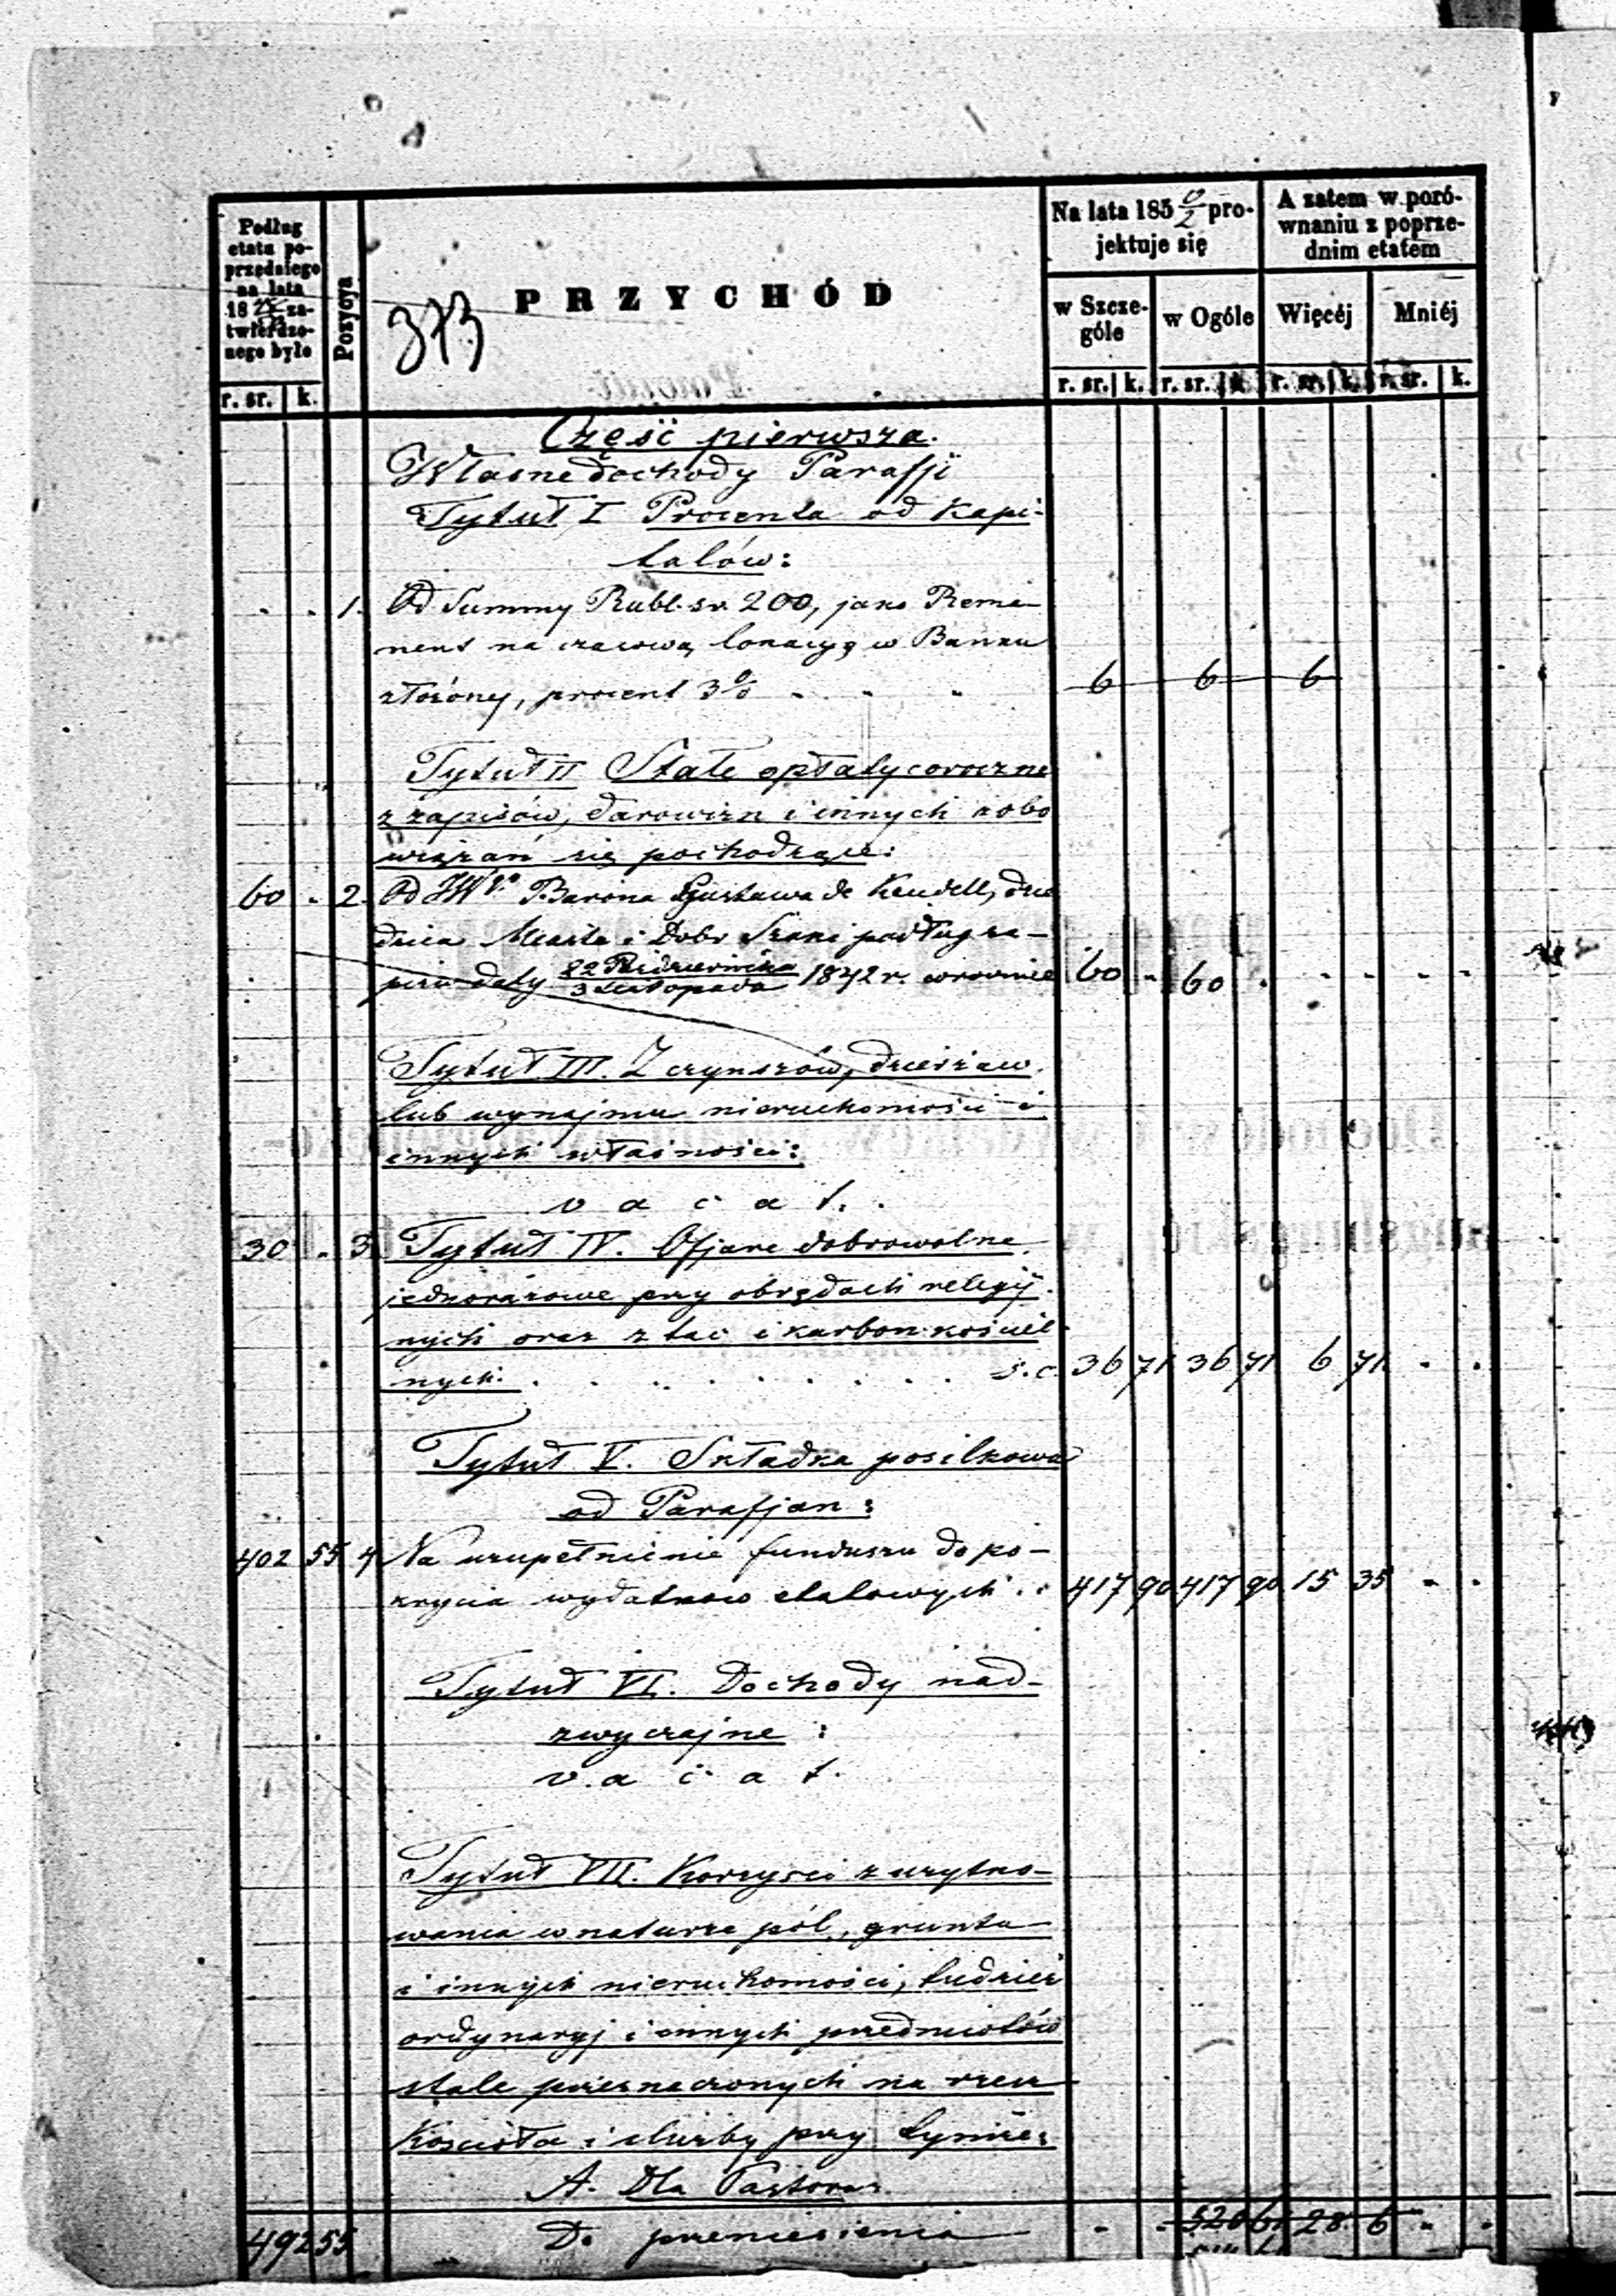 Podług
etatu po-
przedniego
na lata
18 za-
twierdzo-
nego było
r. sr. k.
Pozycya
373
PRZYCHÓD
Na lata 185 0/2 pro-
jektuje się
w Szcze-
góle
w Ogóle
r. sr. k. r. sr. k.
A zatem w poró-
wnaniu z poprze-
dnim etatem
Więcéj Mniéj
r. sr. k. r. sr. k.
Część pierwsza.
Własne dochody Parafji
Tytuł I Procenta od Kapi-
tałów:
- - 1. Od Summy Rubl. sr. 200, jako Rema-
nent na czasową lokacyą w Banku
złożony, procent 3% - - - 6 6 6
Tytuł II Stałe opłaty coroczne
z zapisów, darowizn i innych zobo
wiązań się pochodzące:
60 - 2. Od JWo Barona Gustawa de Keudell, dzie
dzica Miasta i Dobr Szaki podług za-
pisu daty 22 Października / 3 Listopada 1842 r. corocznie 60 - 60 - - - - -
Tytuł III. Z czynszów, dzierżaw
lub wynajmu nieruchomości i
innych własności:
v a c a t.
30 - 3 Tytuł IV. Ofjary dobrowolne
jednorazowe przy obrzędach religij
nych oraz z tac i karbon kościel
nych. . . . . . . . . . s.c. 36 71 36 71 6 71 - -
Tytuł V. Składka posilkowa
od Parafjan:
402 55 4 Na uzupełnienie funduszu do po-
krycia wydatkow etatowych . . 417 90 417 90 15 35 - -
Tytuł VI. Dochody nad-
zwyczajne:
v a c a t.
Tytuł VII. Korzysci z użytko-
wania w naturze pól, gruntu
i innych nieruchomości, tudzież
ordynaryj i innych przedmiotów
stale przeznaczonych na rzecz
Kościoła i służby przy tymże:
A. Dla Pastora
492 55 Do przeniesienia - - 520 61 28 6 - -